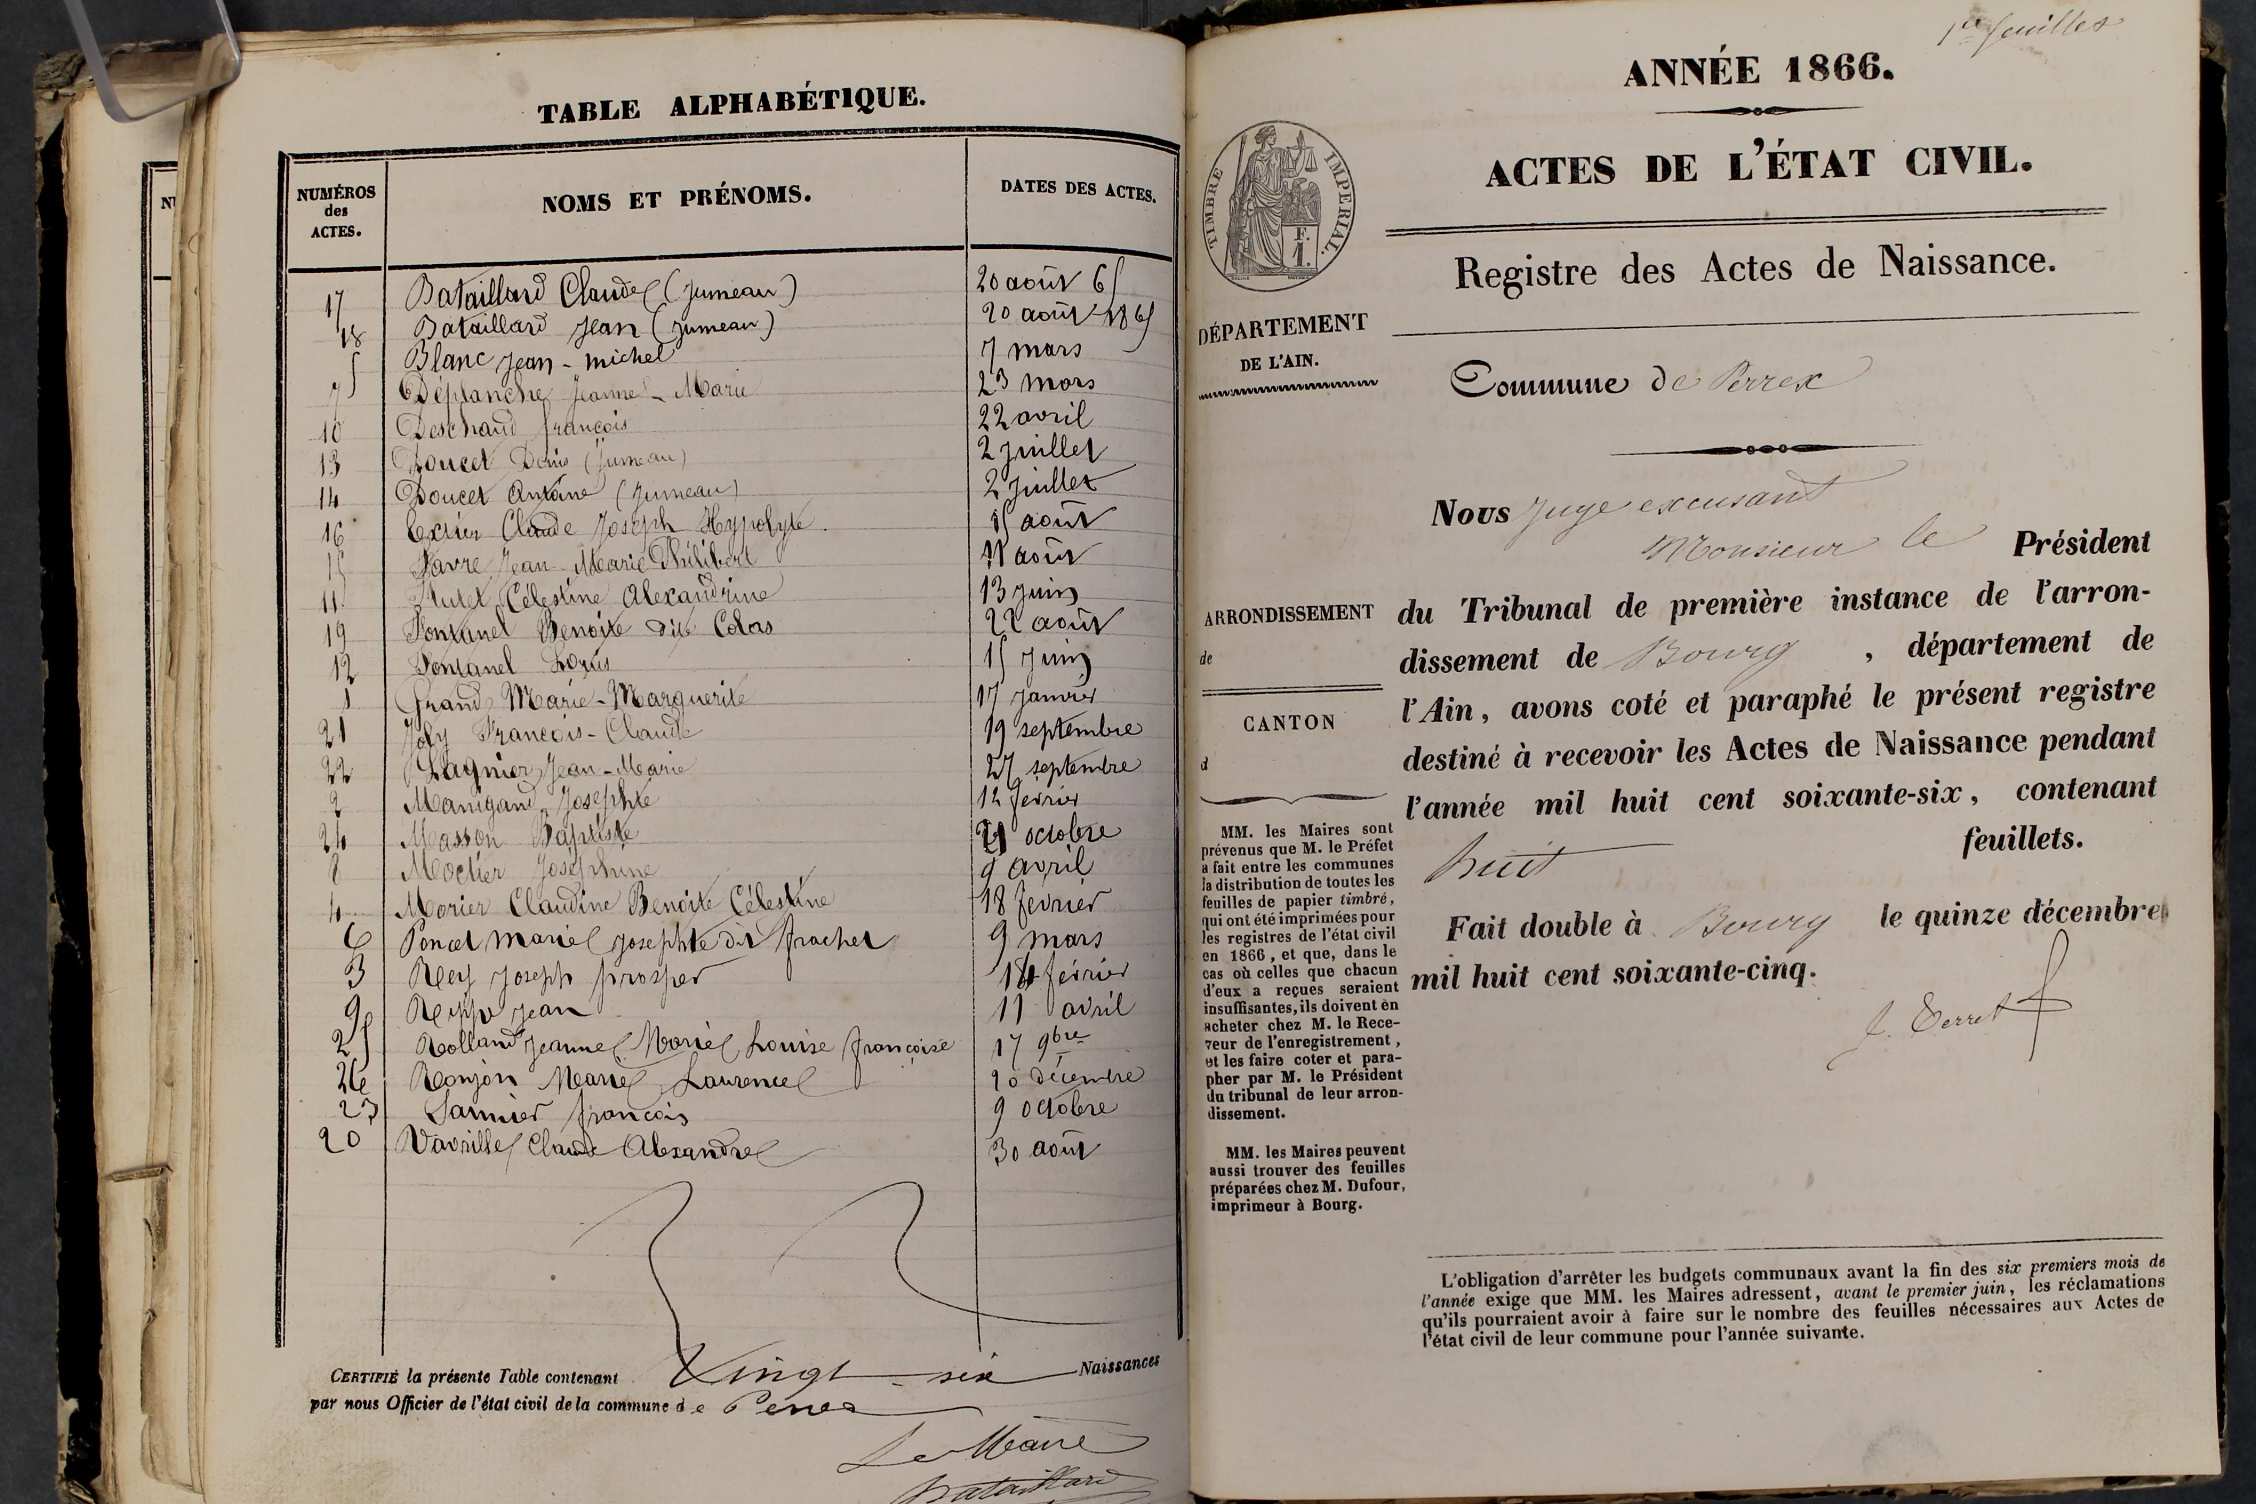 TABLE ALPHABÉTIQUE.
NUMÉROS des ACTES.
NOMS ET PRÉNOMS.
DATES DES ACTES.
17 Bataillard Claude (Jumeau) 20 août 65
18 Bataillard Jean (Jumeau) 20 août 1865
5 Blanc Jean-michel 7 mars
7 Déplanche Jeanne-Marie 23 mars
10 Deschaud françois 22 avril
13 Doucet Denis (Jumeau) 2 Juillet
14 Doucet Antoine (Jumeau) 2 Juillet
16 Exrier Claude Joseph Hypolyte 15 août
15 Favre Jean-Marie Philibert 11 août
11 Célestine Alexandrine 13 Juin
19 Fontanel Benoite dite Colas 22 août
12 Fontanel Louis 15 Juin
1 Grand Marie-Marguerite 17 Janvier
21 Joly François-Claude 19 septembre
22 Lagnier Jean-Marie 27 septembre
2 Manigand Josephte 12 février
24 Masson Baptiste 21 octobre
8 Moctier Joséphine 9 avril
4 Morier Claudine Benoite Célestine 18 février
6 Poncet marie Josephte dit frachet 9 mars
3 Rey Joseph prosper 14 février
9 Reppe Jean 11 avril
25 Rolland Jeanne Marie Louise françoise 17 9bre
26 Ronjon Marie Laurence 20 décembre
23 Sannier françois 9 octobre
20 Vavrille Claude Alexandre 30 août
CERTIFIÉ la présente Table contenant Vingt-six Naissances
par nous Officier de l'état civil de la commune de Perrex
Le Maire
Bataillard
1re feuilles
ANNÉE 1866.
ACTES DE L'ÉTAT CIVIL.
TIMBRE IMPERIAL.
F.
1.
Registre des Actes de Naissance.
DÉPARTEMENT
DE L'AIN.
Commune de Perrex
Nous Juge excusant
Monsieur le Président
ARRONDISSEMENT
de
CANTON
d
du Tribunal de première instance de l'arron-
dissement de Bourg , département de
l'Ain, avons coté et paraphé le présent registre
destiné à recevoir les Actes de Naissance pendant
l'année mil huit cent soixante-six, contenant
huit feuillets.
Fait double à Bourg le quinze décembre
mil huit cent soixante-cinq.
J. Perret
MM. les Maires sont
prévenus que M. le Préfet
a fait entre les communes
la distribution de toutes les
feuilles de papier timbré,
qui ont été imprimées pour
les registres de l'état civil
en 1866, et que, dans le
cas où celles que chacun
d'eux a reçues seraient
insuffisantes, ils doivent en
acheter chez M. le Rece-
veur de l'enregistrement,
et les faire coter et para-
pher par M. le Président
du tribunal de leur arron-
dissement.
MM. les Maires peuvent
aussi trouver des feuilles
préparées chez M. Dufour,
imprimeur à Bourg.
L'obligation d'arrêter les budgets communaux avant la fin des six premiers mois de
l'année exige que MM. les Maires adressent, avant le premier juin, les réclamations
qu'ils pourraient avoir à faire sur le nombre des feuilles nécessaires aux Actes de
l'état civil de leur commune pour l'année suivante.